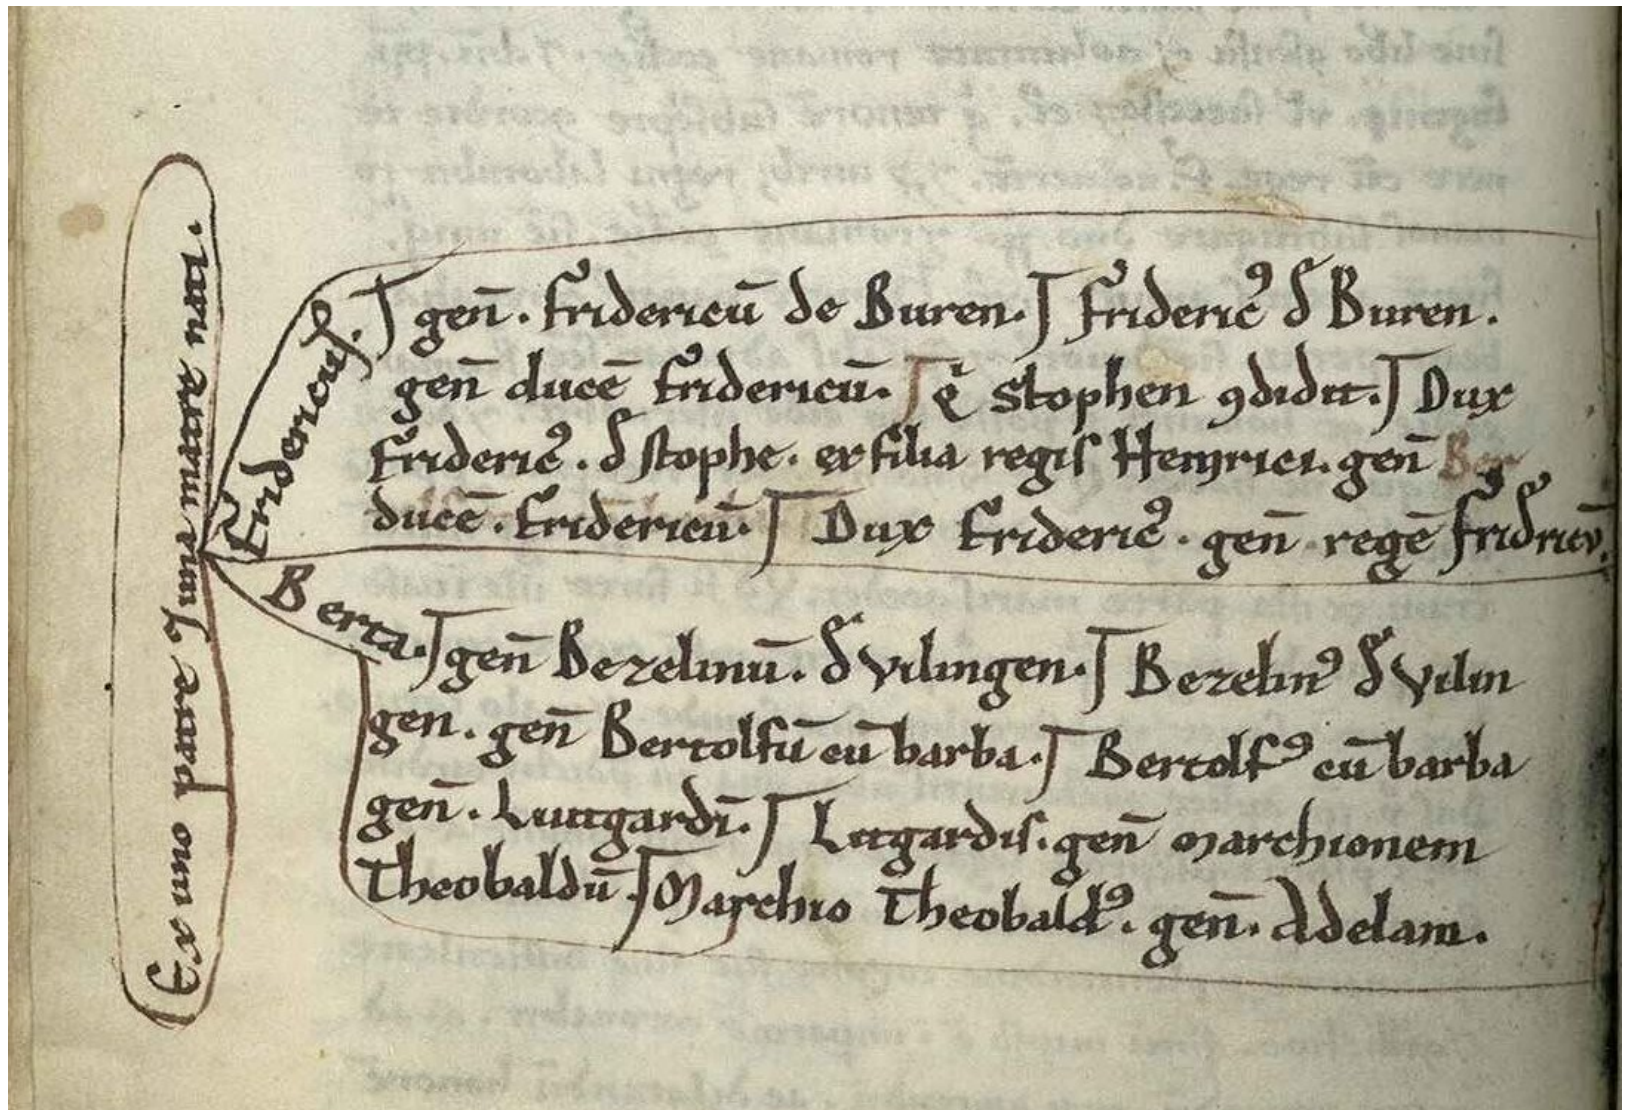 Ex uno patre ⁊ una matre nati.
Fridericus.
gen̄. Fridericū de Buren. Frideric᷒ đ Buren.
gen̄ ducē Fridericū. q̇ Stophen ꝯdidit. Dux
Frideric᷒. đ stophe. ex filia regis Heinrici. gen̄ Ber
ducē. Fridericū. Dux Frideric᷒. gen̄ regē fridricū.
Berta.
gen̄ Bezelinū. đ vilingen. Bezelin᷒ đ vilin
gen. gen̄ Bertolfū cū barba. Bertolf᷒ cū barba
gen̄. Liutgardī. Litgardis. gen̄ marchionem
Theobaldū. Marchio Theobald᷒. gen̄. Adelam.